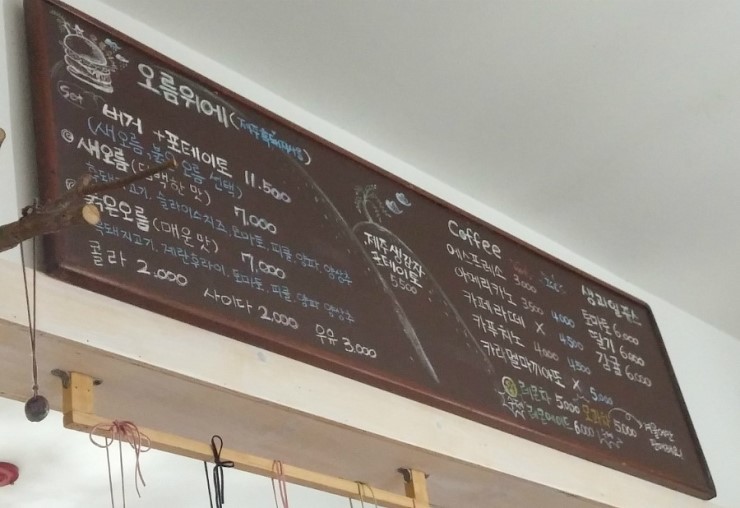 오름위에 (제주흑돼지사용)
Set 버거 + 포테이토 11.500
(새오름, 붉은오름 선택)
새오름 (담백한 맛) 7.000
흑돼지고기, 슬라이스치즈, 토마토, 피클, 양파, 양상추
붉은오름 (매운 맛) 7.000
흑돼지고기, 계란후라이, 토마토, 피클, 양파, 양상추
콜라 2.000 사이다 2.000 우유 3.000
제주생감자
포테이토
5500
Coffee
에스프레소 3.000
아메리카노 3500 4000
카페라떼 X 4.500
카푸치노 4000 4500
카라멜마끼아또 X 5.000
생과일쥬스
토마토 6.000
딸기 6.000
감귤 6.000
레몬차 5.000 5.000
레몬에이드 6.000